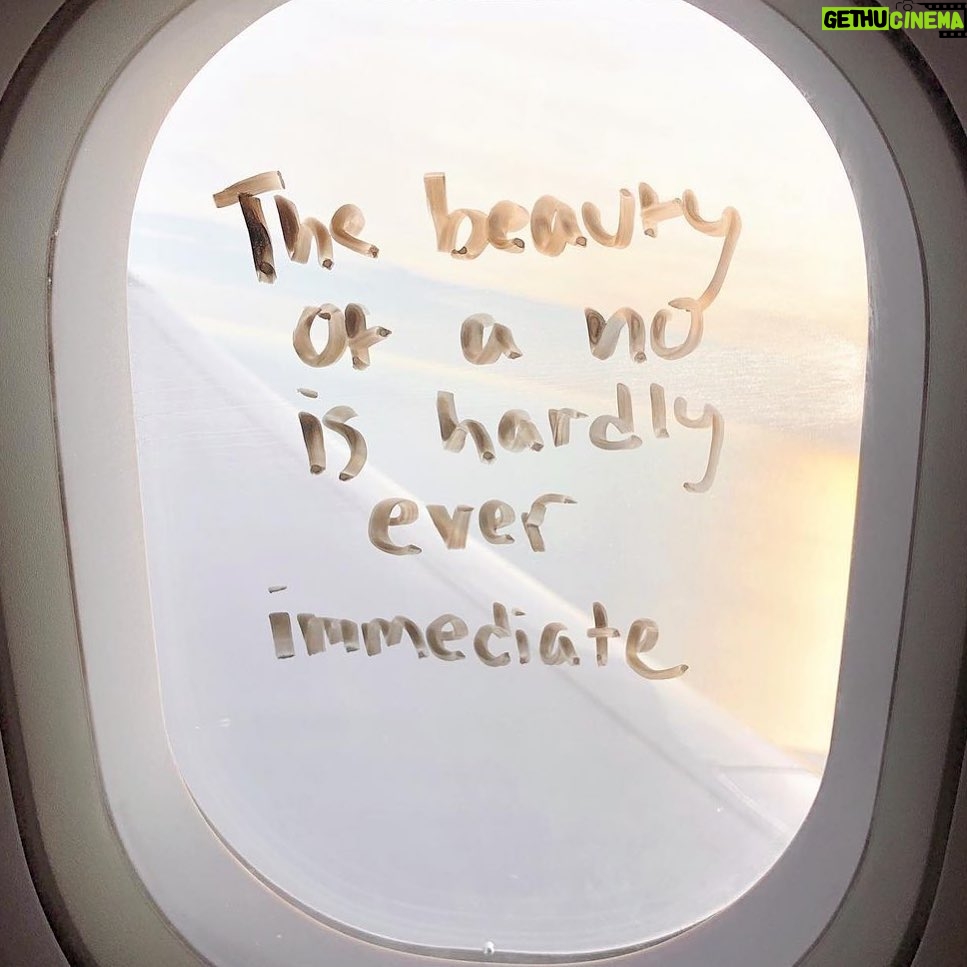 GETHUCINEMA
The beauty
of a no
is hardly
ever
immediate